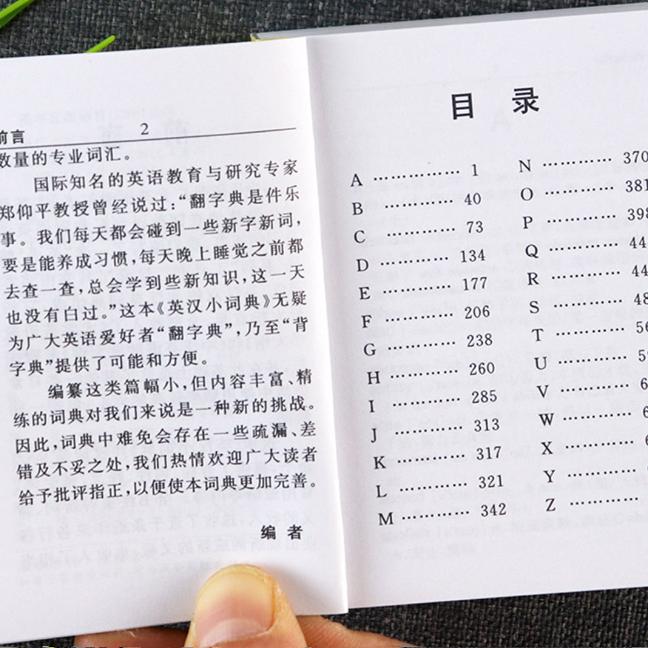 前言 2
数量的专业词汇。
国际知名的英语教育与研究专家
郑仰平教授曾经说过：“翻字典是件乐
事。我们每天都会碰到一些新字新词，
要是能养成习惯，每天晚上睡觉之前都
去查一查，总会学到些新知识，这一天
也没有白过。”这本《英汉小词典》无疑
为广大英语爱好者“翻字典”，乃至“背
字典”提供了可能和方便。
编纂这类篇幅小，但内容丰富、精
练的词典对我们来说是一种新的挑战。
因此，词典中难免会存在一些疏漏、差
错及不妥之处，我们热情欢迎广大读者
给予批评指正，以便使本词典更加完善。
编 者
目 录
A ………… 1
B ………… 40
C ………… 73
D ………… 134
E ………… 177
F ………… 206
G ………… 238
H ………… 260
I ………… 285
J ………… 313
K ………… 317
L ………… 321
M ………… 342
N ………… 370
O ………… 381
P ………… 398
Q …………
R …………
S …………
T …………
U …………
V …………
W …………
X …………
Y …………
Z …………